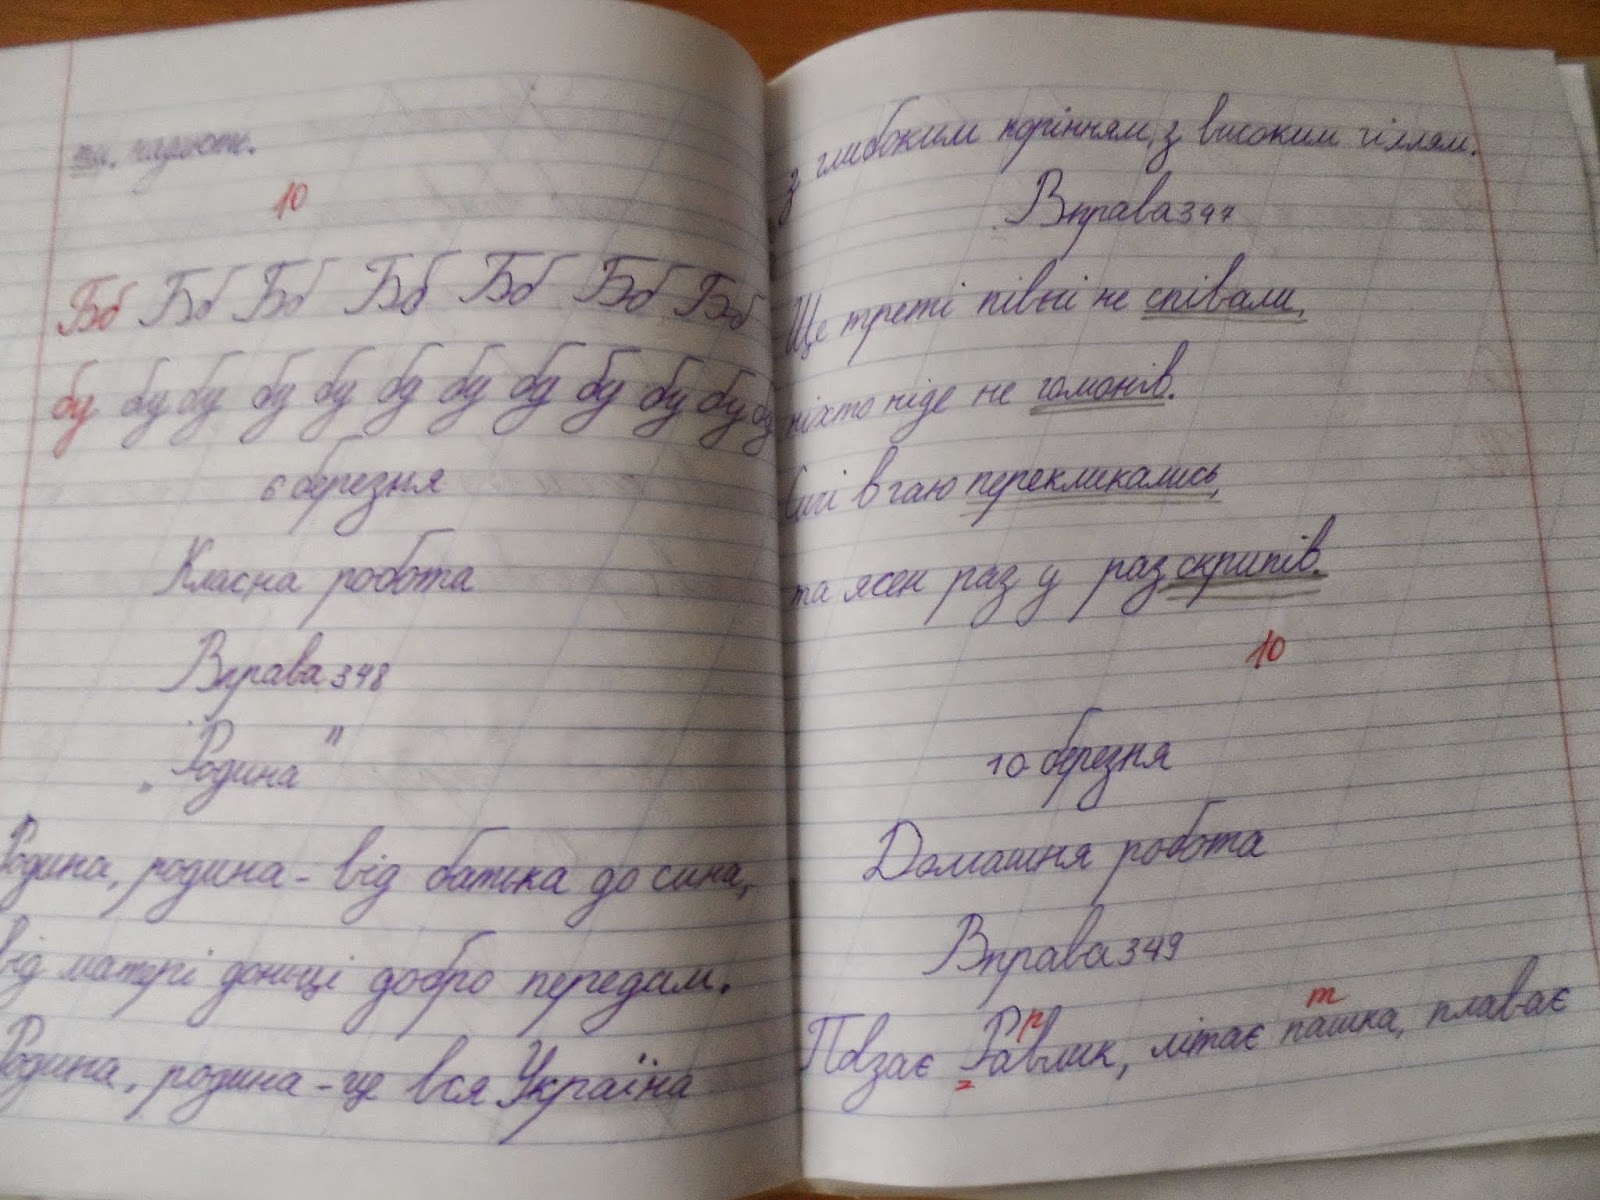 ти.
10
Бб Бб Бб Бб Бб Бб Бб
бу бу бу бу бу бу бу бу бу бу бу бу
6 березня
Класна робота
Вправа 348
„Родина"
Родина, родина - від батька до сина,
від матері доньці добро передам.
Родина, родина - це вся Україна
з глибоким корінням, з високим гіллям.
Вправа 347
Ще треті півні не співали,
ніхто ніде не гомонів.
Сичі в гаю перекликались,
та ясен раз у раз скрипів.
10
10 березня
Домашня робота
Вправа 349
р т
Повзає Равлик, літає пашка, плаває